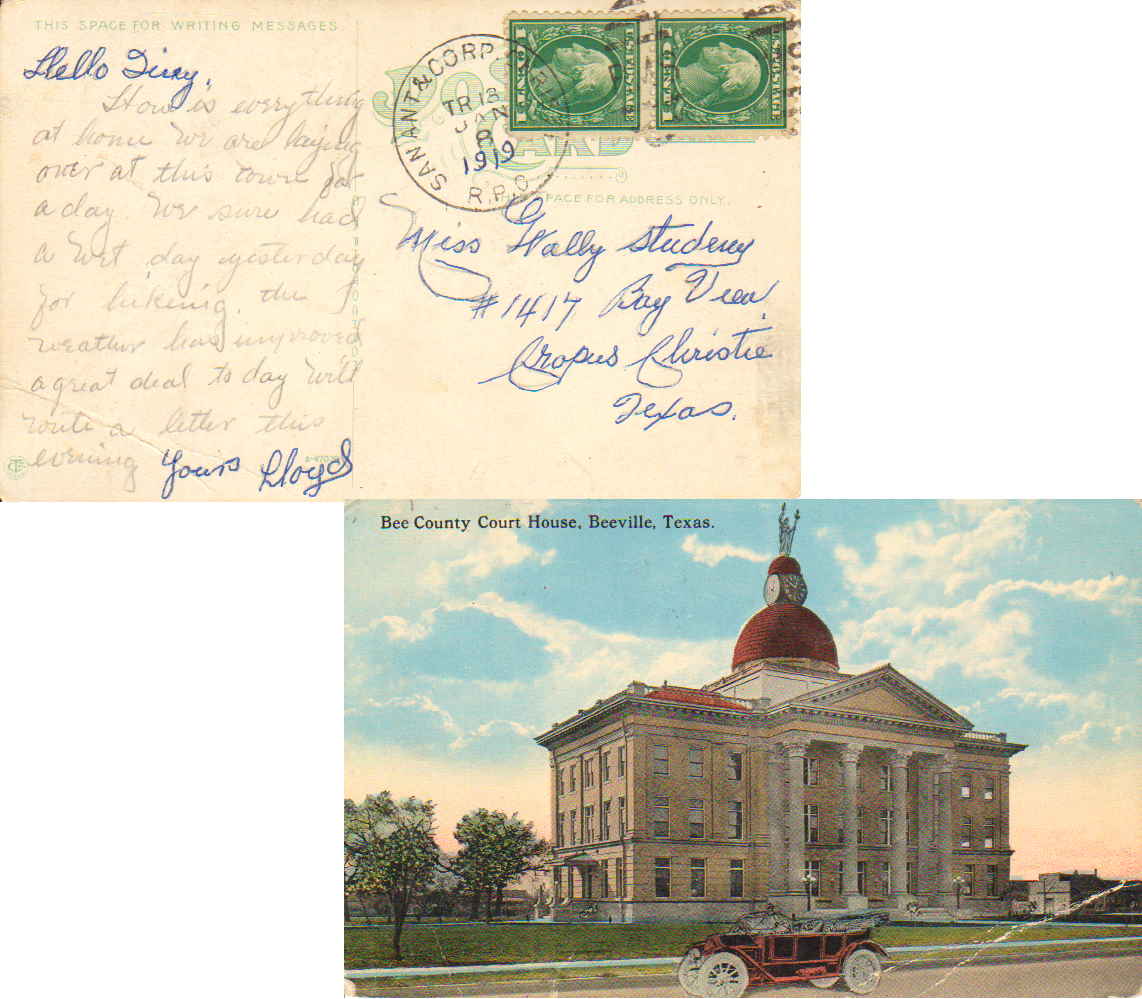 THIS SPACE FOR WRITING MESSAGES.
Hello
How is everything
at home We are laying
over at this town for
a day. We sure had
a Wet day yesterday
for hikeing. the
weather has improved
a great deal to day Will
write a letter this
evening Yours Lloyd
SAN ANT. & CORP.
TR 18
JAN
8
1919
R.P.O.
U.S. POSTAGE
1 ONE 1
U.S. POSTAGE
1 ONE 1
POST CARD
THIS SPACE FOR ADDRESS ONLY.
Miss Wally
#1417 Bay View
Cropus Christie
Texas.
Bee County Court House, Beeville, Texas.